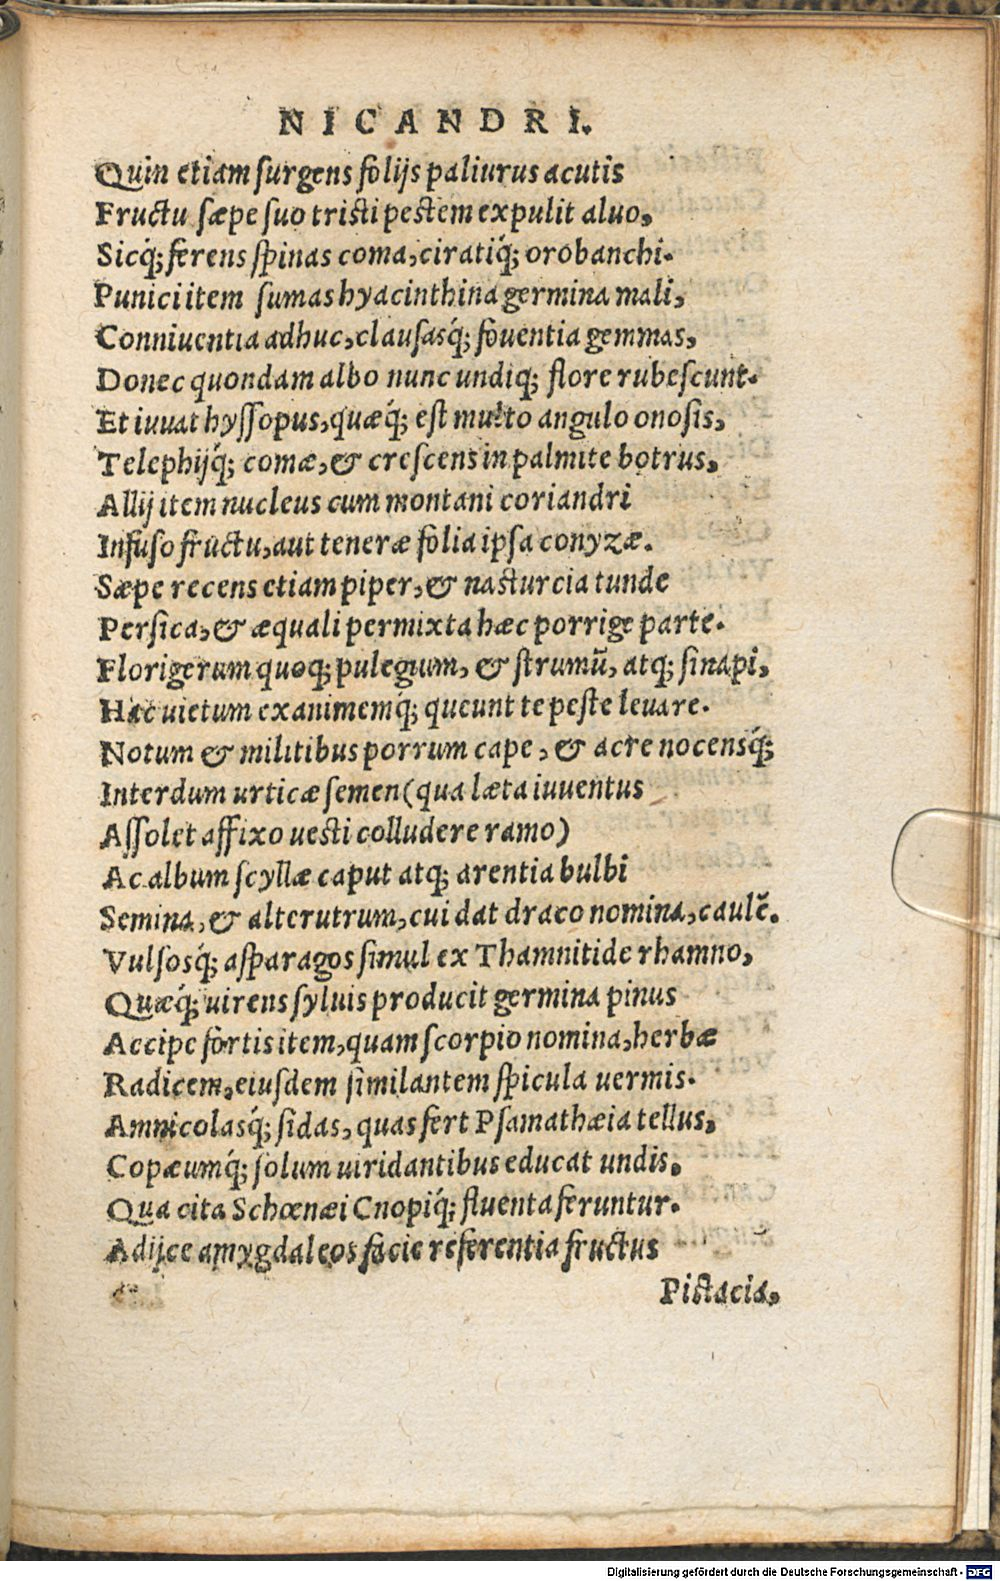 NICANDRI.
Quin etiam surgens folijs paliurus acutis
Fructu sæpe suo tristi pestem expulit aluo,
Sicq́; ferens spinas coma, ciratiq́; orobanchi.
Punici item sumas hyacinthina germina mali,
Conniuentia adhuc, clausasq́; fouentia gemmas,
Donec quondam albo nunc undiq; flore rubescunt.
Et iuuat hyssopus, quæq́; est multo angulo onosis,
Telephijq́; comæ, & crescens in palmite botrus,
Allij item nucleus cum montani coriandri
Infuso fructu, aut teneræ folia ipsa conyzæ.
Sæpe recens etiam piper, & nasturcia tunde
Persica, & æquali permixta hæc porrige parte.
Florigerum quoq; pulegium, & strumū, atq; sinapi,
Hæc uietum exanimemq́; queunt te peste leuare.
Notum & militibus porrum cape, & acre nocensq́;
Interdum urticæ semen (qua læta iuuentus
Assolet affixo uesti colludere ramo)
Ac album scyllæ caput atq; arentia bulbi
Semina, & alterutrum, cui dat draco nomina, caulē.
Vulsosq́; asparagos simul ex Thamnitide rhamno,
Quæq́; uirens syluis producit germina pinus
Accipe fortis item, quam scorpio nomina, herbæ
Radicem, eiusdem similantem spicula uermis.
Amnicolasq́; sidas, quas fert Psamathæia tellus,
Copæumq́; solum uiridantibus educat undis,
Qua cita Schœnæi Cnopiq́; fluenta feruntur.
Adijce amygdaleos facie referentia fructus
Pistacia,
Digitalisierung gefördert durch die Deutsche Forschungsgemeinschaft - DFG